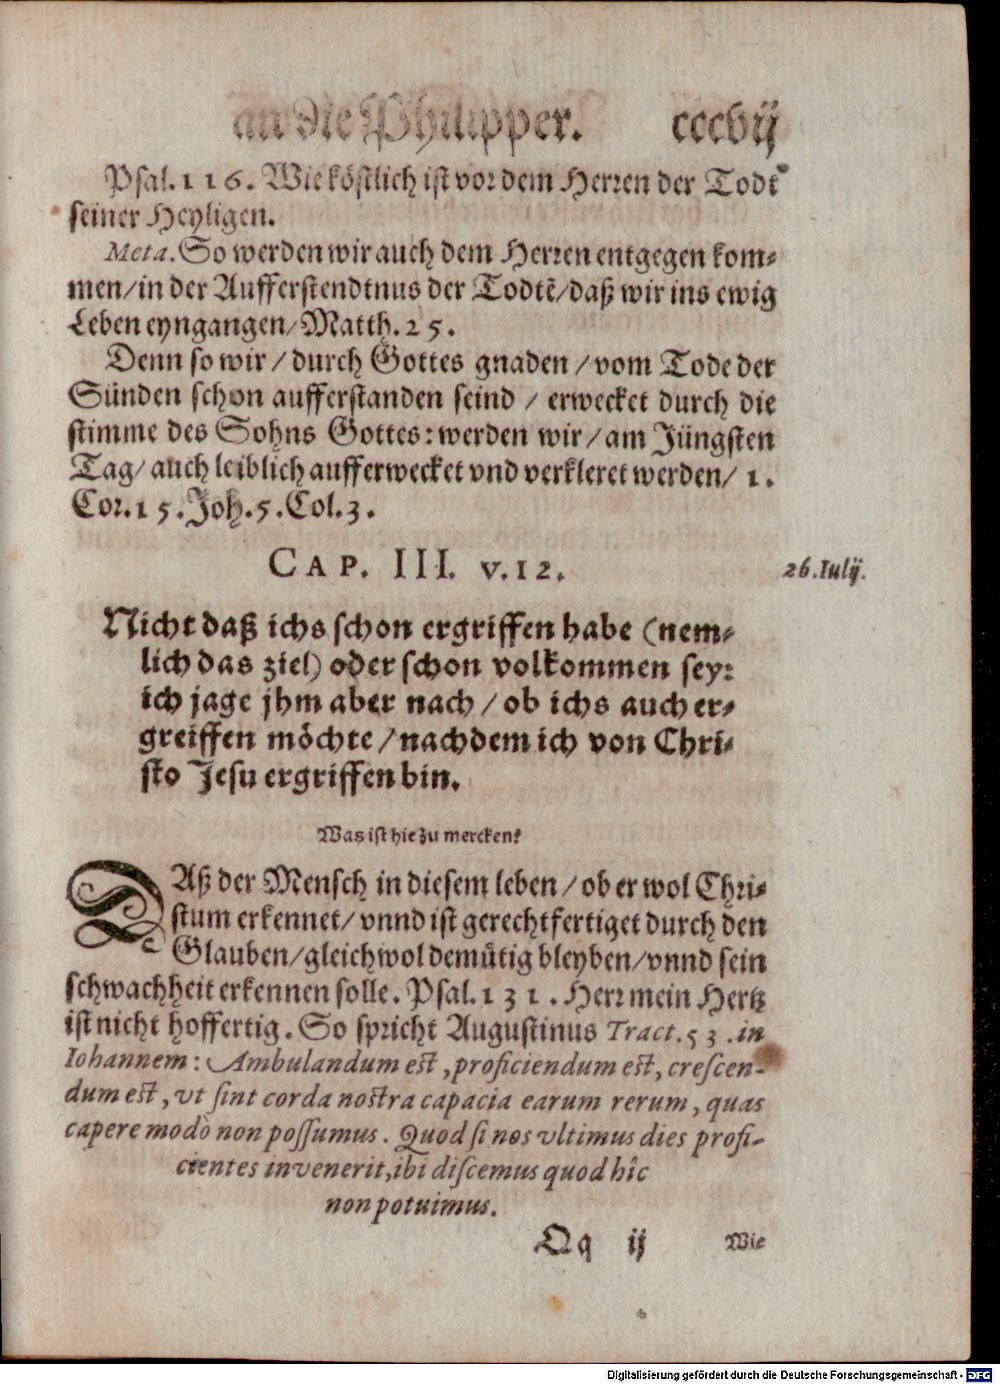 an die Philipper. cccvij
Psal. 116. Wie köstlich ist vor dem Herren der Todt
seiner Heyligen.
Meta. So werden wir auch dem Herren entgegen kom-
men/in der Aufferstendtnus der Todtẽ/daß wir ins ewig
Leben eyngangen/Matth. 25.
Denn so wir / durch Gottes gnaden / vom Tode der
Sünden schon aufferstanden seind / erwecket durch die
stimme des Sohns Gottes: werden wir / am Jüngsten
Tag/ auch leiblich aufferwecket vnd verkleret werden/ 1.
Cor. 15. Joh. 5. Col. 3.
CAP. III. v. 12. 26. Iulij.
Nicht daß ichs schon ergriffen habe (nem-
lich das ziel) oder schon volkommen sey:
ich jage jhm aber nach / ob ichs auch er-
greiffen möchte / nachdem ich von Chri-
sto Jesu ergriffen bin.
Was ist hie zu mercken?
DAß der Mensch in diesem leben / ob er wol Chri-
stum erkennet/ vnnd ist gerechtfertiget durch den
Glauben/gleichwol demütig bleyben/vnnd sein
schwachheit erkennen solle. Psal. 131. Herr mein Hertz
ist nicht hoffertig. So spricht Augustinus Tract. 53. in
Iohannem: Ambulandum est, proficiendum est, crescen-
dum est, vt sint corda nostra capacia earum rerum, quas
capere modò non possumus. Quod si nos vltimus dies profi-
cientes invenerit, ibi discemus quod hîc
non potuimus.
Qq ij Wie
Digitalisierung gefördert durch die Deutsche Forschungsgemeinschaft - DFG